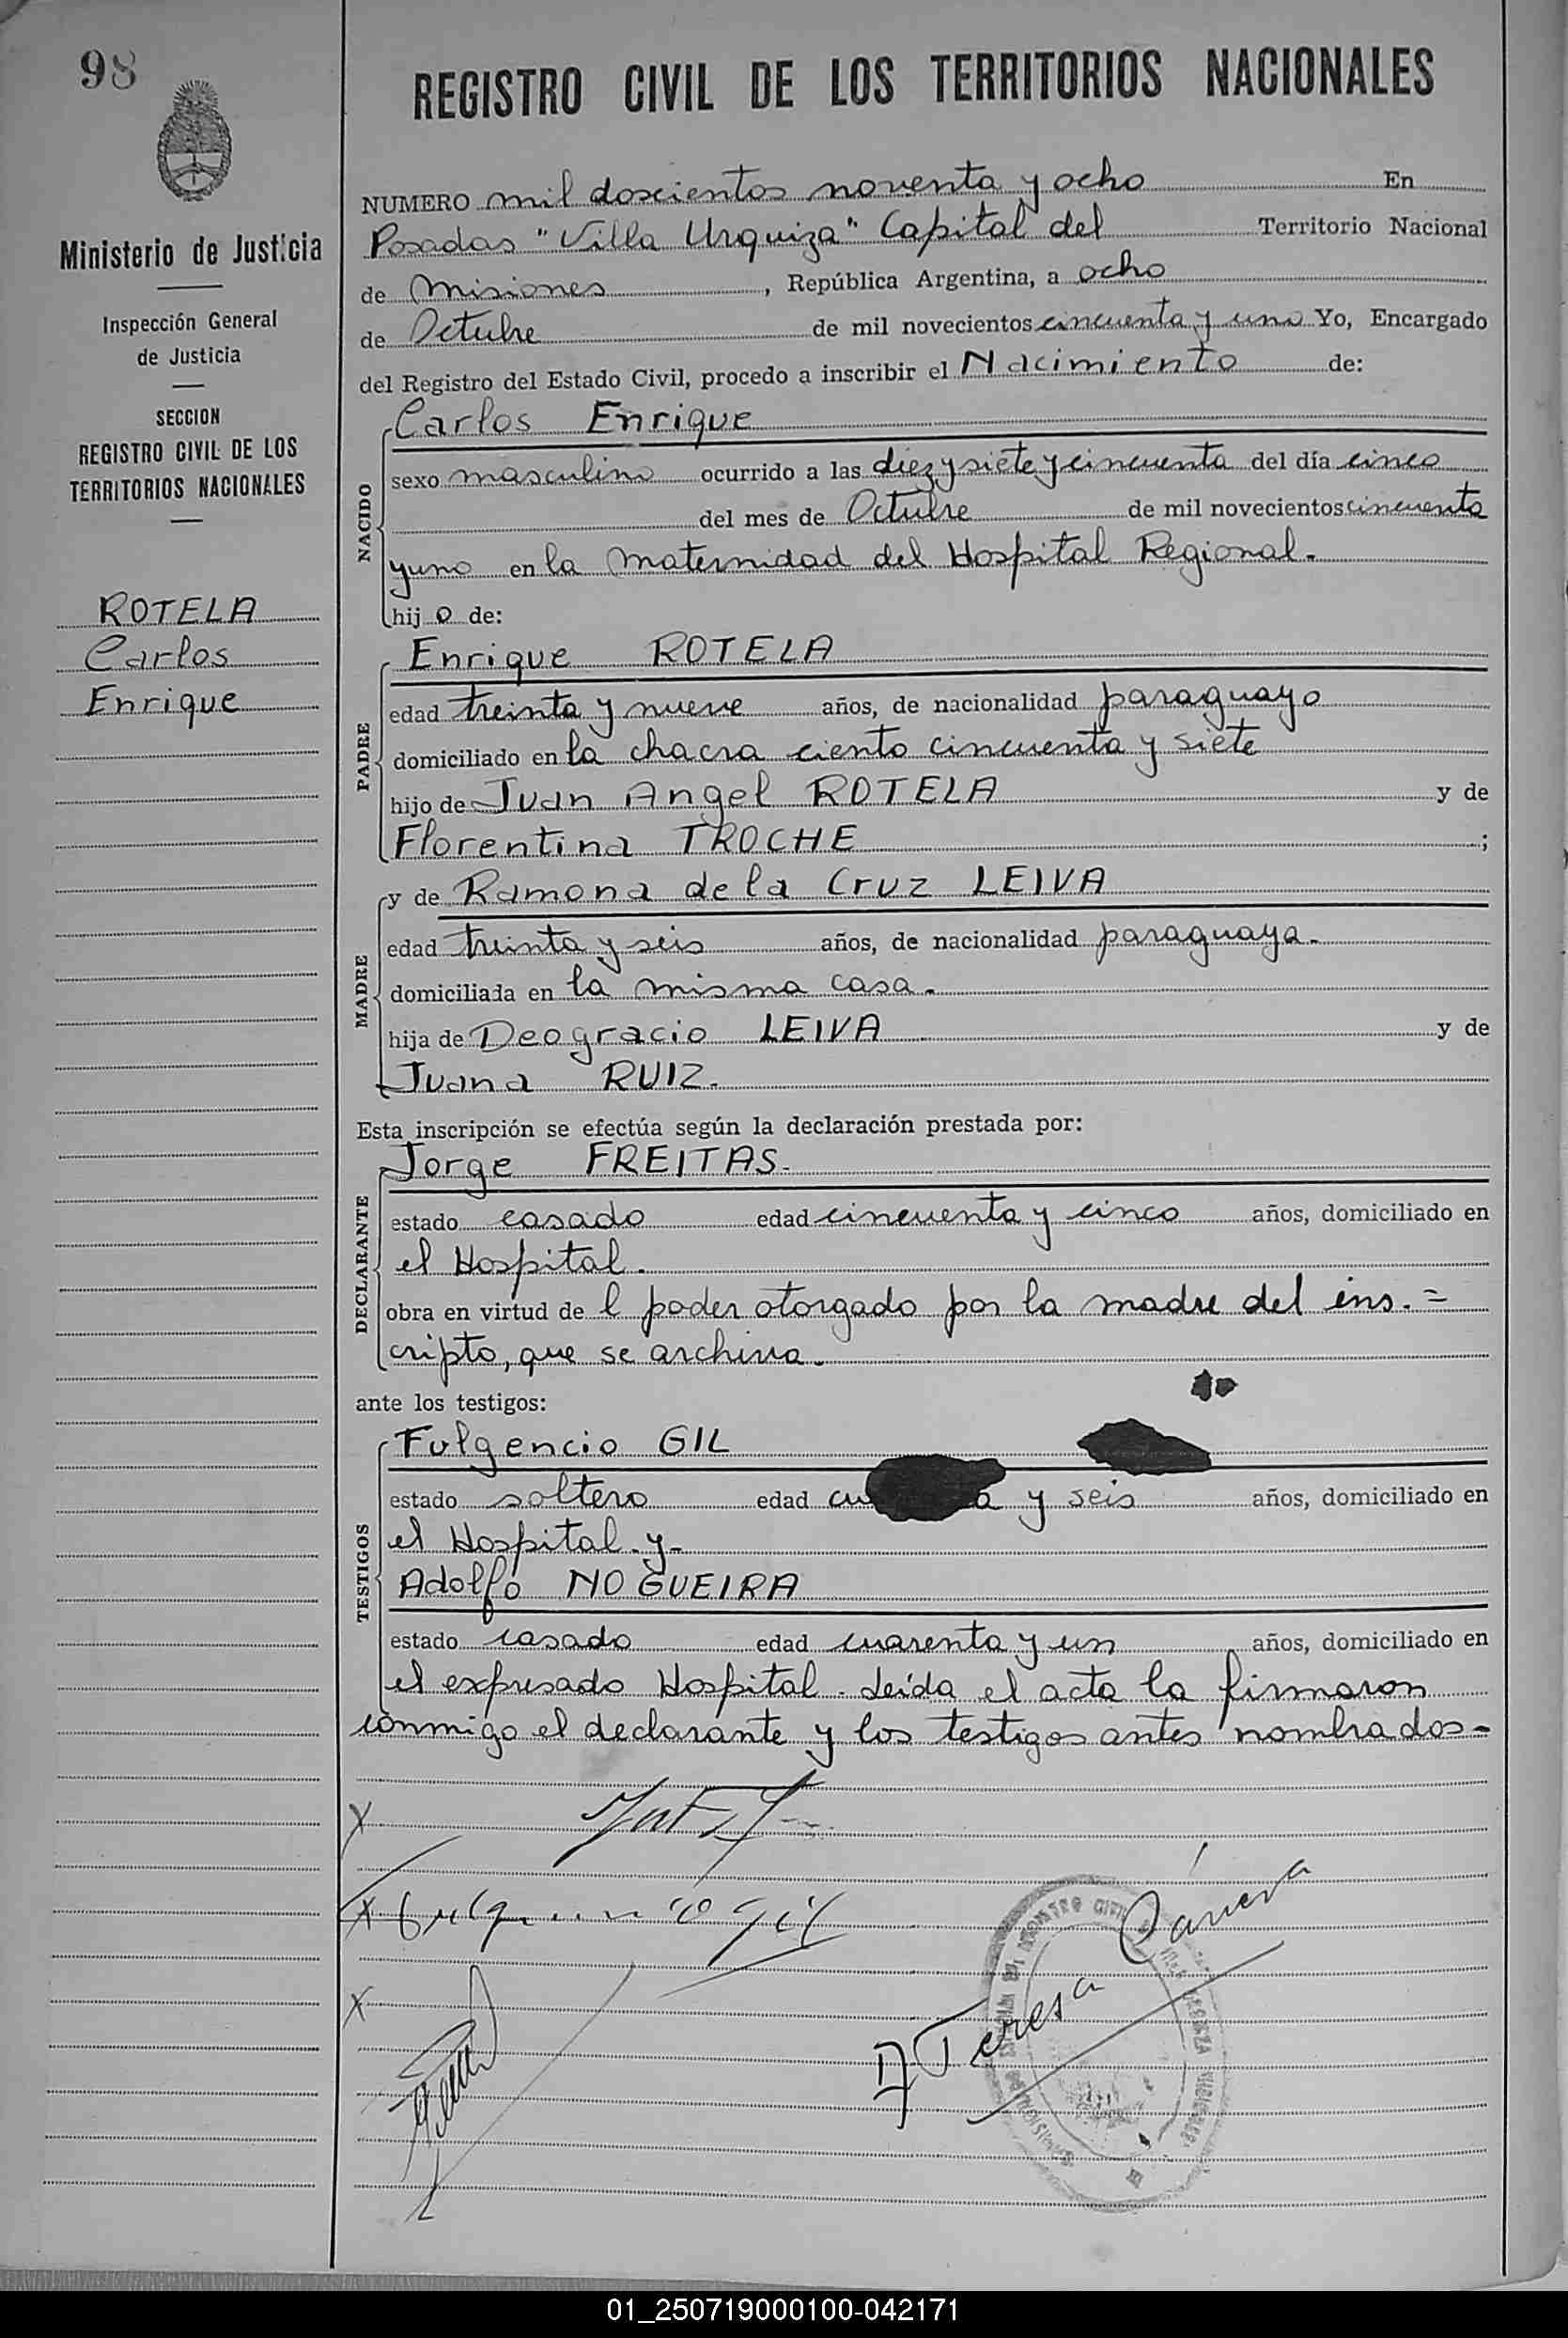 98
Ministerio de Justicia
Inspección General
de Justicia
SECCION
REGISTRO CIVIL DE LOS
TERRITORIOS NACIONALES
ROTELA
Carlos
Enrique
REGISTRO CIVIL DE LOS TERRITORIOS NACIONALES
NUMERO mil doscientos noventa y ocho En
Posadas "Villa Urquiza" Capital del Territorio Nacional
de Misiones, República Argentina, a ocho
de Octubre de mil novecientos cincuenta y uno Yo, Encargado
del Registro del Estado Civil, procedo a inscribir el Nacimiento de:
NACIDO
Carlos Enrique
sexo masculino ocurrido a las diez y siete y cincuenta del día cinco
del mes de Octubre de mil novecientos cincuenta
y uno en la Maternidad del Hospital Regional.
hij o de:
PADRE
Enrique ROTELA
edad treinta y nueve años, de nacionalidad paraguayo
domiciliado en la chacra ciento cincuenta y siete
hijo de Juan Angel ROTELA y de
Florentina TROCHE ;
MADRE
y de Ramona de la Cruz LEIVA
edad treinta y seis años, de nacionalidad paraguaya.
domiciliada en la misma casa.
hija de Deogracio LEIVA y de
Juana RUIZ.
Esta inscripción se efectúa según la declaración prestada por:
DECLARANTE
Jorge FREITAS.
estado casado edad cincuenta y cinco años, domiciliado en
el Hospital.
obra en virtud de l poder otorgado por la madre del ins. =
cripto, que se archiva.
ante los testigos:
TESTIGOS
Fulgencio GIL
estado soltero edad y seis años, domiciliado en
el Hospital. y-
Adolfo NOGUEIRA
estado casado edad cuarenta y un años, domiciliado en
el expresado Hospital. Leída el acta la firmaron
conmigo el declarante y los testigos antes nombrados-
x
x gil
x
Teresa
01_250719000100-042171